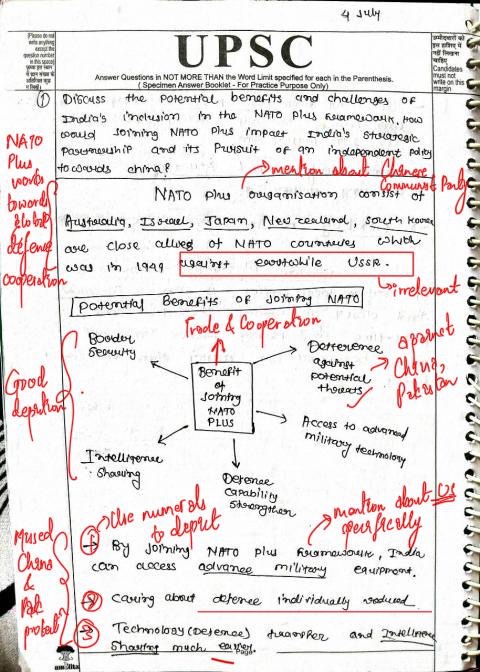 4 July
[Please do not write anything except the question number in this space]
UPSC
Answer Questions in NOT MORE THAN the Word Limit specified for each in the Parenthesis.
( Specimen Answer Booklet - For Practice Purpose Only)
उम्मीदवारों को इस हाशिए में नहीं लिखना चाहिए
Candidates must not write on this margin
① Discuss the potential benefits and challenges of
India's inclusion in the NATO Plus framework. How
would Joining NATO Plus impact India's strategic
Partnership and its Pursuit of an independent policy
towards china?
mention about Chinese
Communist Party
NATO
Plus
works
towards
global
defense
cooperation
NATO plus organisation consist of
Australia, Israel, Japan, New zealand, south Korea
are close allies of NATO countries which
was in 1949 against earstwhile USSR.
irrelevant
Potential Benefits of Joining NATO
Trade & Cooperation
Border
Security
Deterrence
against
potential
threats
against
China,
Pakistan
Good
depiction
Benefit
of
Joining
NATO
PLUS
Access to advanced
military technology
Intelligence
sharing
Defence
capability
strengthen
Use numerals
to depict
mention about US
specifically
→ By Joining NATO plus Framework, India
can access advance military equipment.
Missed
China
&
Pak
→ Caring about defence individually reduced
→ Technology (Defence) transfer and Intelligence
Sharing much easier.
Page